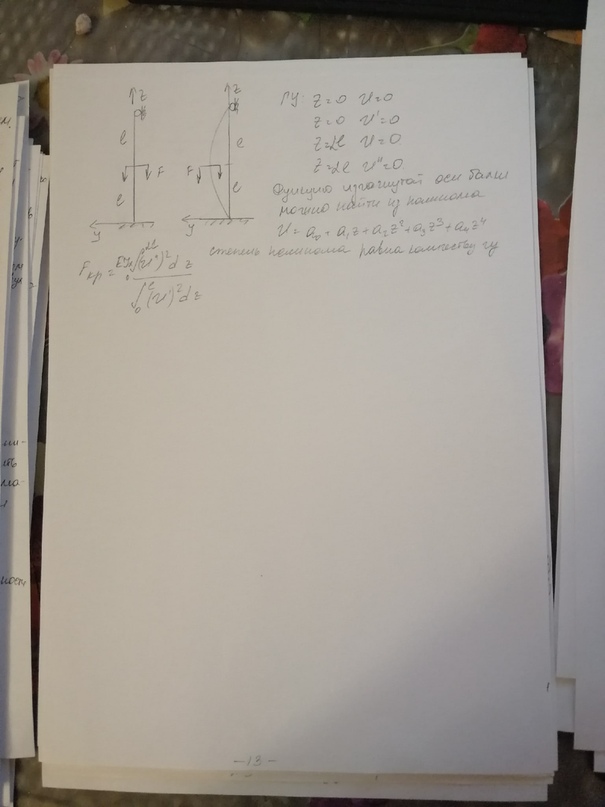 z
z
ГУ: z=0 v=0
z=0 v'=0
z=2l v=0
z=2l v''=0
l
l
F
F
l
l
y
y
Функцию изогнутой оси балки
можно найти из полинома
v = a₀ + a₁z + a₂z² + a₃z³ + a₄z⁴
степень полинома равна количеству гу
Fкр = EJx∫₀²ˡ(v'')²dz / ∫₀ˡ(v')²dz
-13-